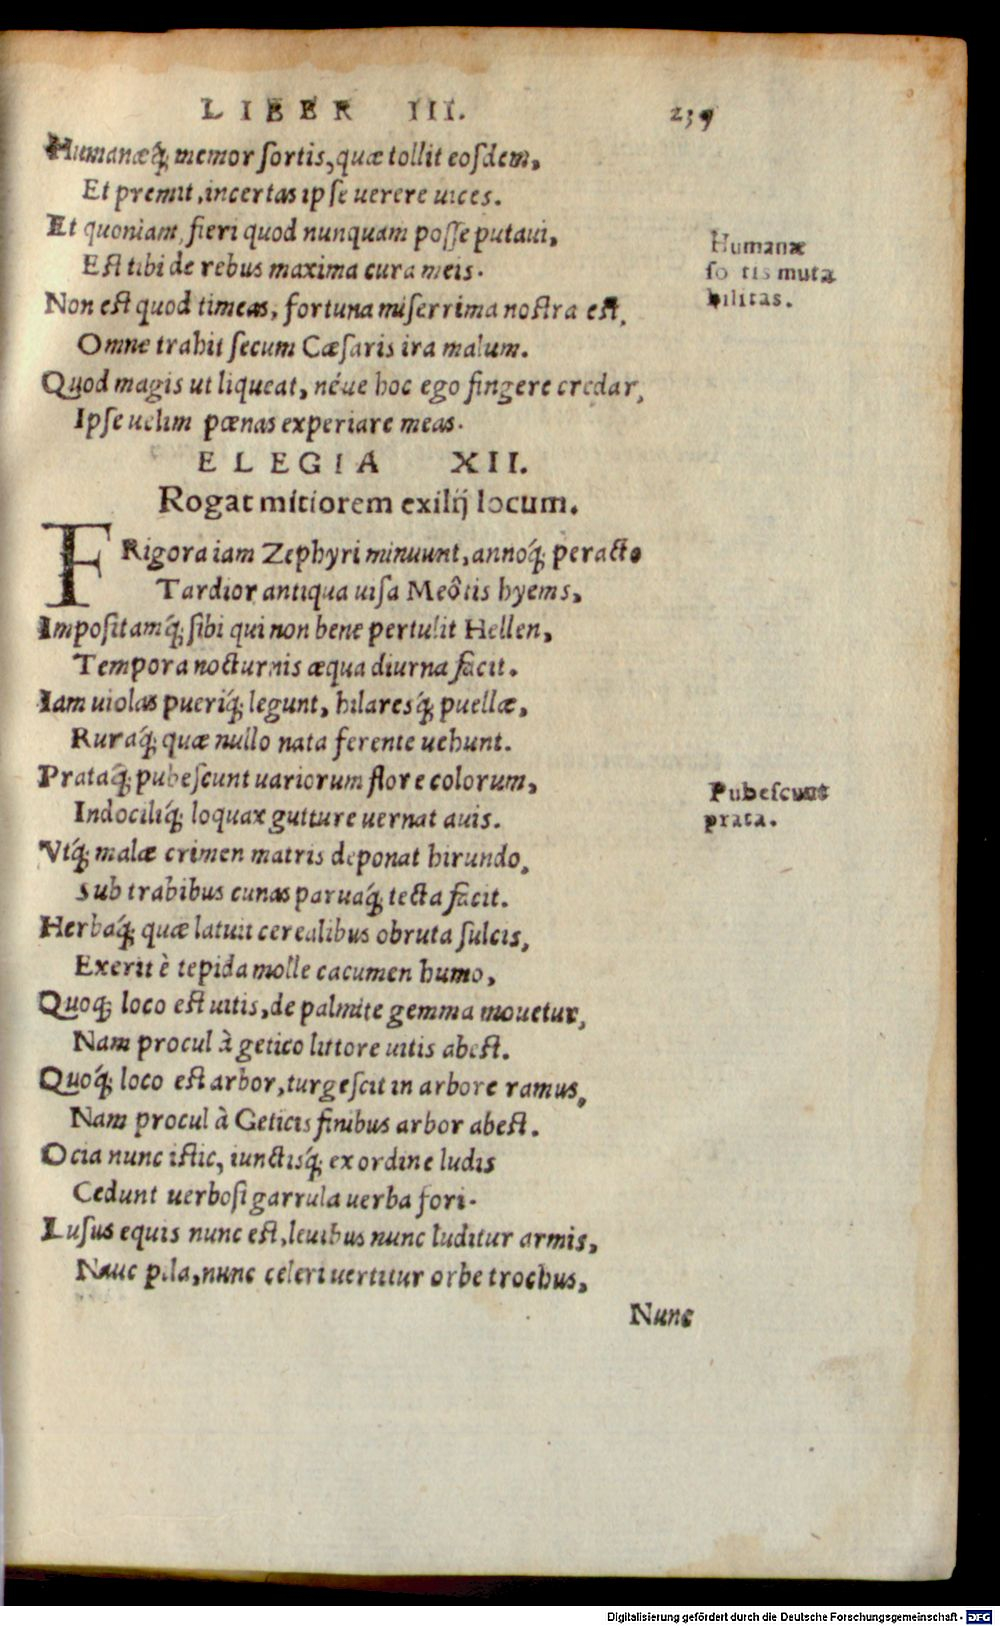 LIBER III. 239
Humanæq́; memor ſortis, quæ tollit eoſdem,
Et premit, incertas ipſe uerere uices.
Et quoniam, fieri quod nunquam poſſe putaui,
Eſt tibi de rebus maxima cura meis.
Humanæ
ſo tis muta
bilitas.
Non eſt quod timeas, fortuna miſerrima noſtra eſt,
Omne trahit ſecum Cæſaris ira malum.
Quod magis ut liqueat, néue hoc ego fingere credar,
Ipſe uelim pœnas experiare meas.
ELEGIA XII.
Rogat mitiorem exilij locum.
FRigora iam Zephyri minuunt, annoq́; peracto
Tardior antiqua uiſa Meôtis hyems,
Impoſitamq́; ſibi qui non bene pertulit Hellen,
Tempora nocturnis æqua diurna facit.
Iam uiolas pueriq́; legunt, hilaresq́; puellæ,
Ruraq́; quæ nullo nata ferente uehunt.
Prataq́; pubeſcunt uariorum flore colorum,
Indociliq́; loquax gutture uernat auis.
Pubeſcunt
prata.
Vtq́; malæ crimen matris deponat hirundo,
Sub trabibus cunas paruaq́; tecta facit.
Herbaq́; quæ latuit cerealibus obruta ſulcis,
Exerit è tepida molle cacumen humo,
Quoq; loco eſt uitis, de palmite gemma mouetur,
Nam procul à getico littore uitis abeſt.
Quoq́; loco eſt arbor, turgeſcit in arbore ramus,
Nam procul à Geticis finibus arbor abeſt.
Ocia nunc iſtic, iunctisq́; ex ordine ludis
Cedunt uerboſi garrula uerba fori.
Luſus equis nunc eſt, leuibus nunc luditur armis,
Nunc pila, nunc celeri uertitur orbe trochus,
Nunc
Digitalisierung gefördert durch die Deutsche Forschungsgemeinschaft - DFG